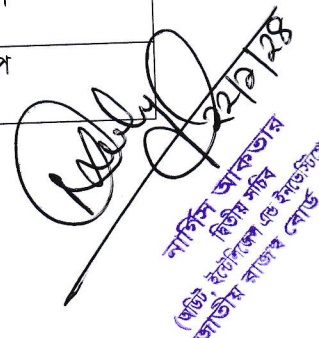 ২২/১/২৪
নার্গিস আকতার
দ্বিতীয় সচিব
(অডিট, ইন্টেলিজেন্স এন্ড
জাতীয় রাজস্ব বোর্ড